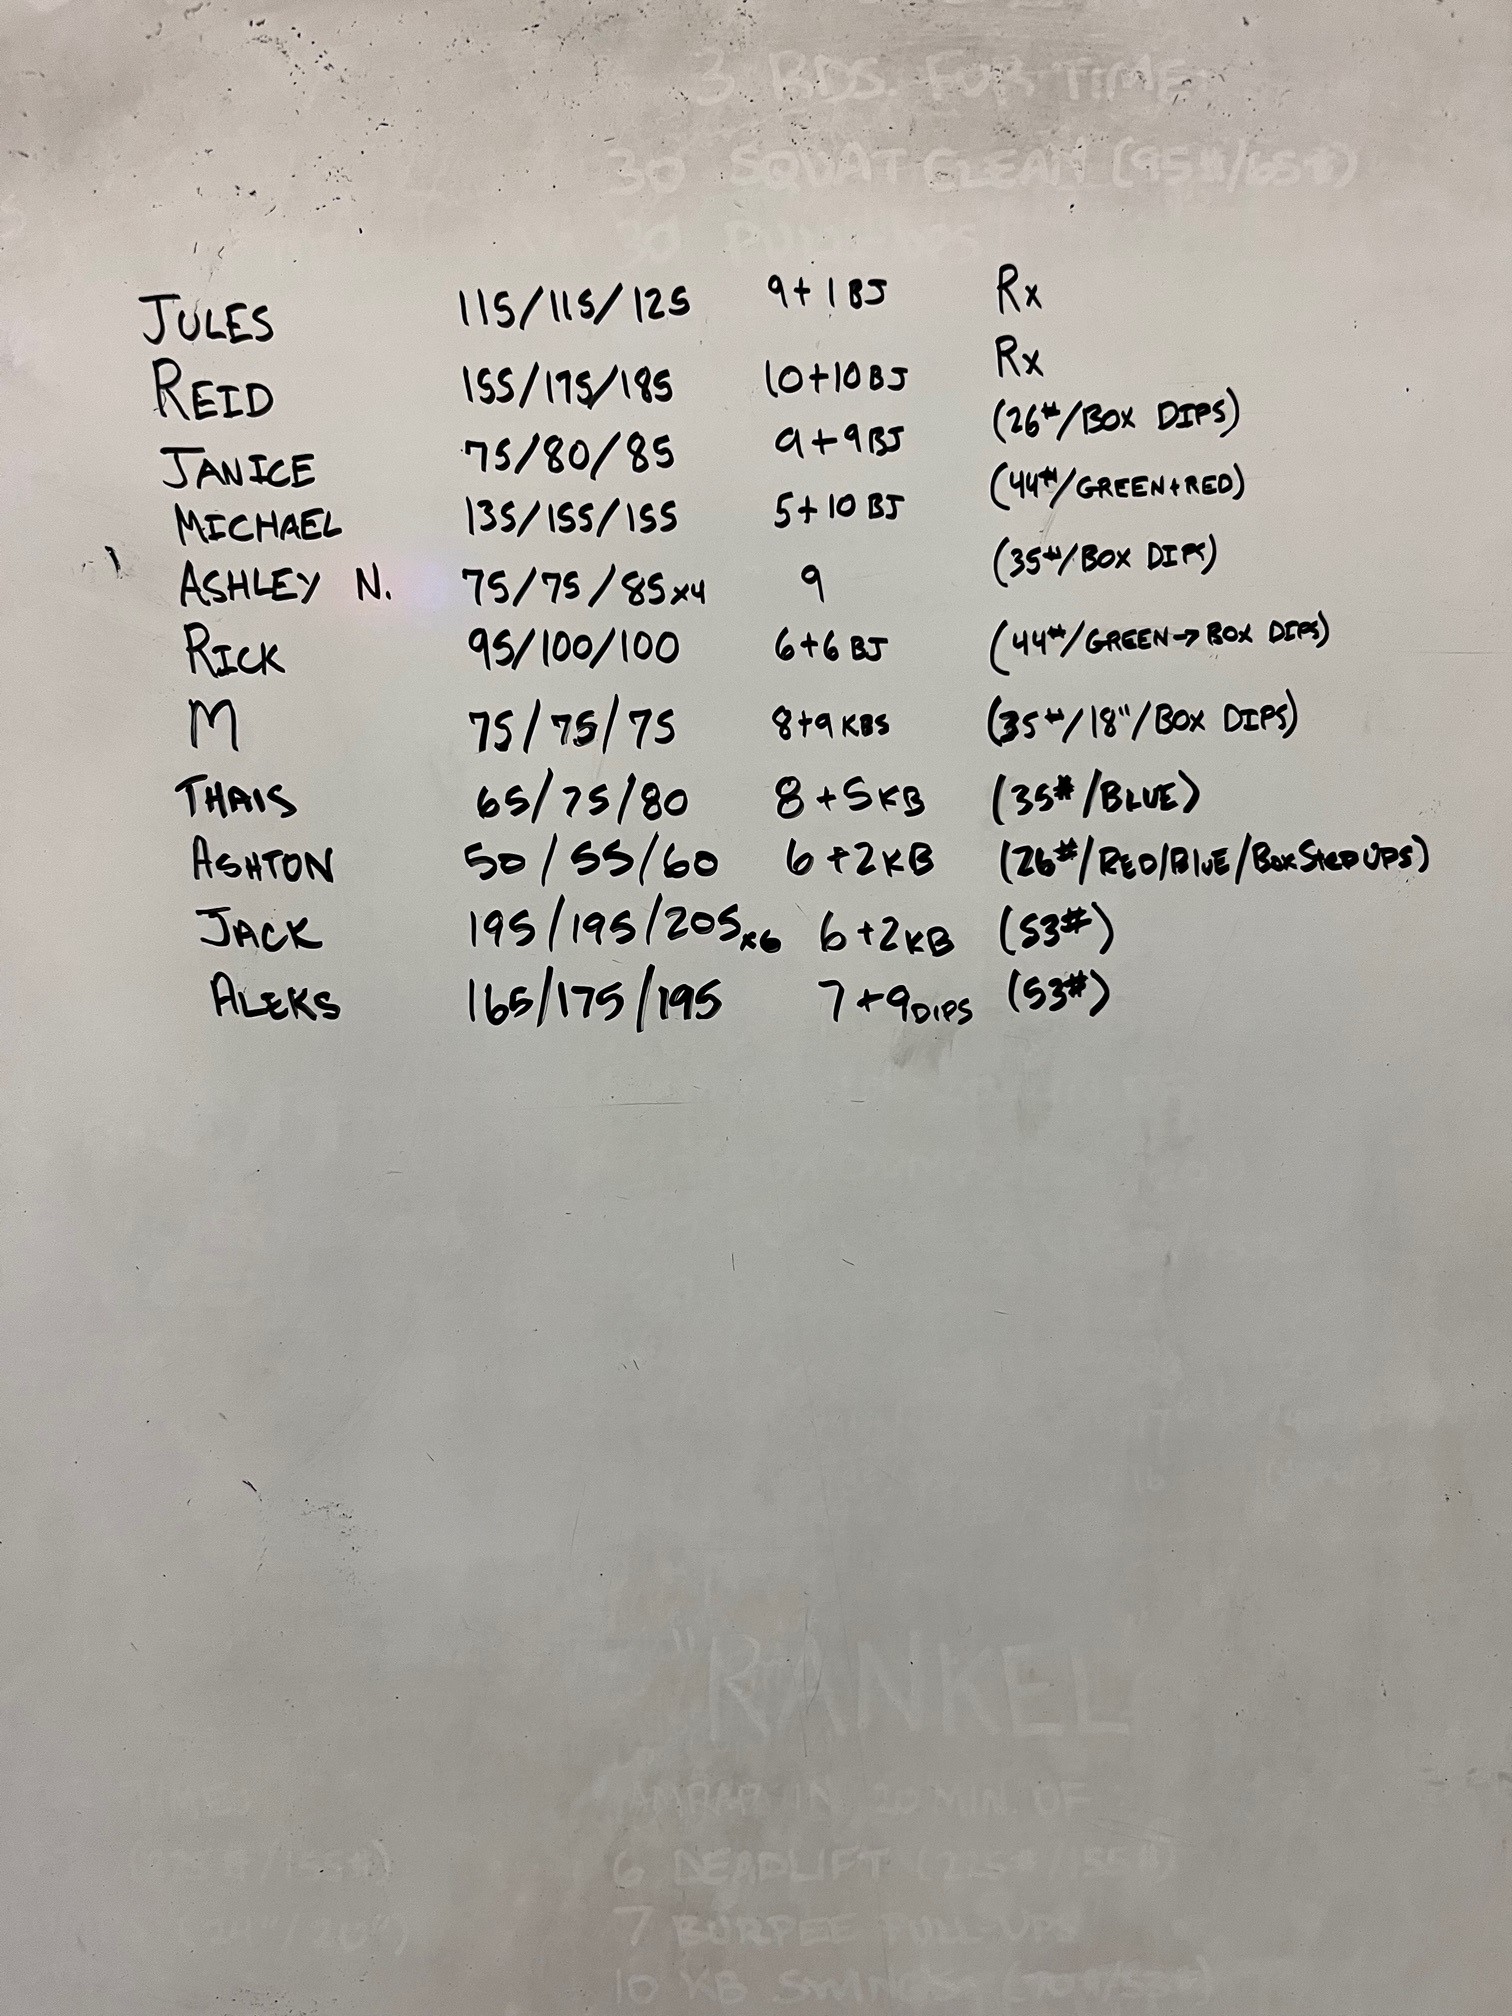 3 RDS. FOR TIME
30 SQUAT CLEAN (95#/65#)
30
JULES 115/115/125 9+1 BJ Rx
REID 155/175/185 10+10 BJ Rx
JANICE 75/80/85 9+9 BJ (26#/BOX DIPS)
MICHAEL 135/155/155 5+10 BJ (44#/GREEN+RED)
ASHLEY N. 75/75/85x4 9 (35#/BOX DIPS)
RICK 95/100/100 6+6 BJ (44#/GREEN→BOX DIPS)
M 75/75/75 8+9 KBS (35#/18"/BOX DIPS)
THAIS 65/75/80 8+5KB (35#/BLUE)
ASHTON 50/55/60 6+2KB (26#/RED/BLUE/BOX STEP UPS)
JACK 195/195/205x6 6+2KB (53#)
ALEKS 165/175/195 7+9DIPS (53#)
"RANKEL"
AMRAP IN 20 MIN. OF
6 DEADLIFT (225#/155#)
7 BURPEE PULL-UPS
(24"/20")
10 KB SWINGS